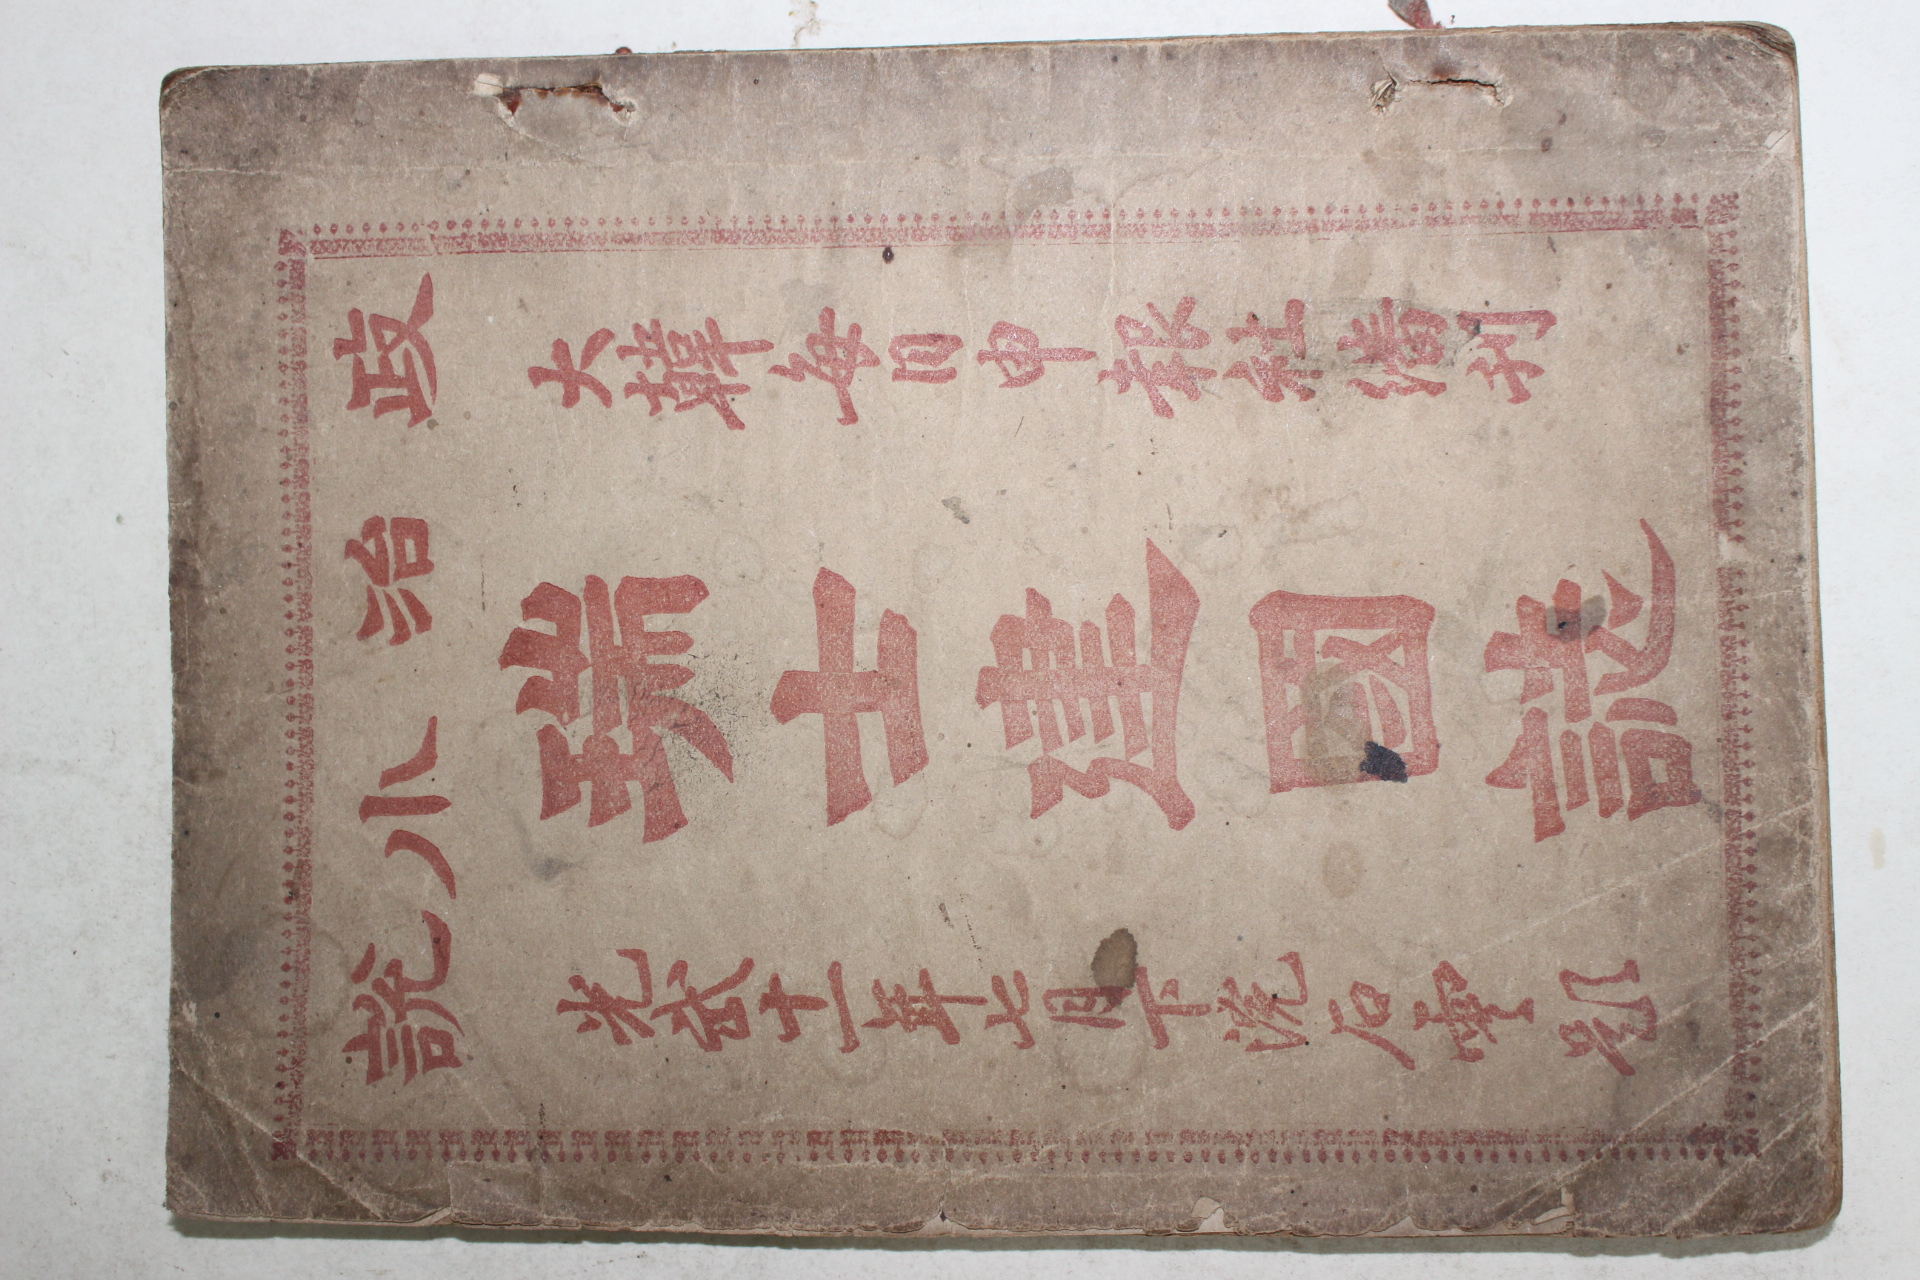 政治小說
大韓每日申報社繙刊
瑞士建國誌
光武十一年七月下浣石雲